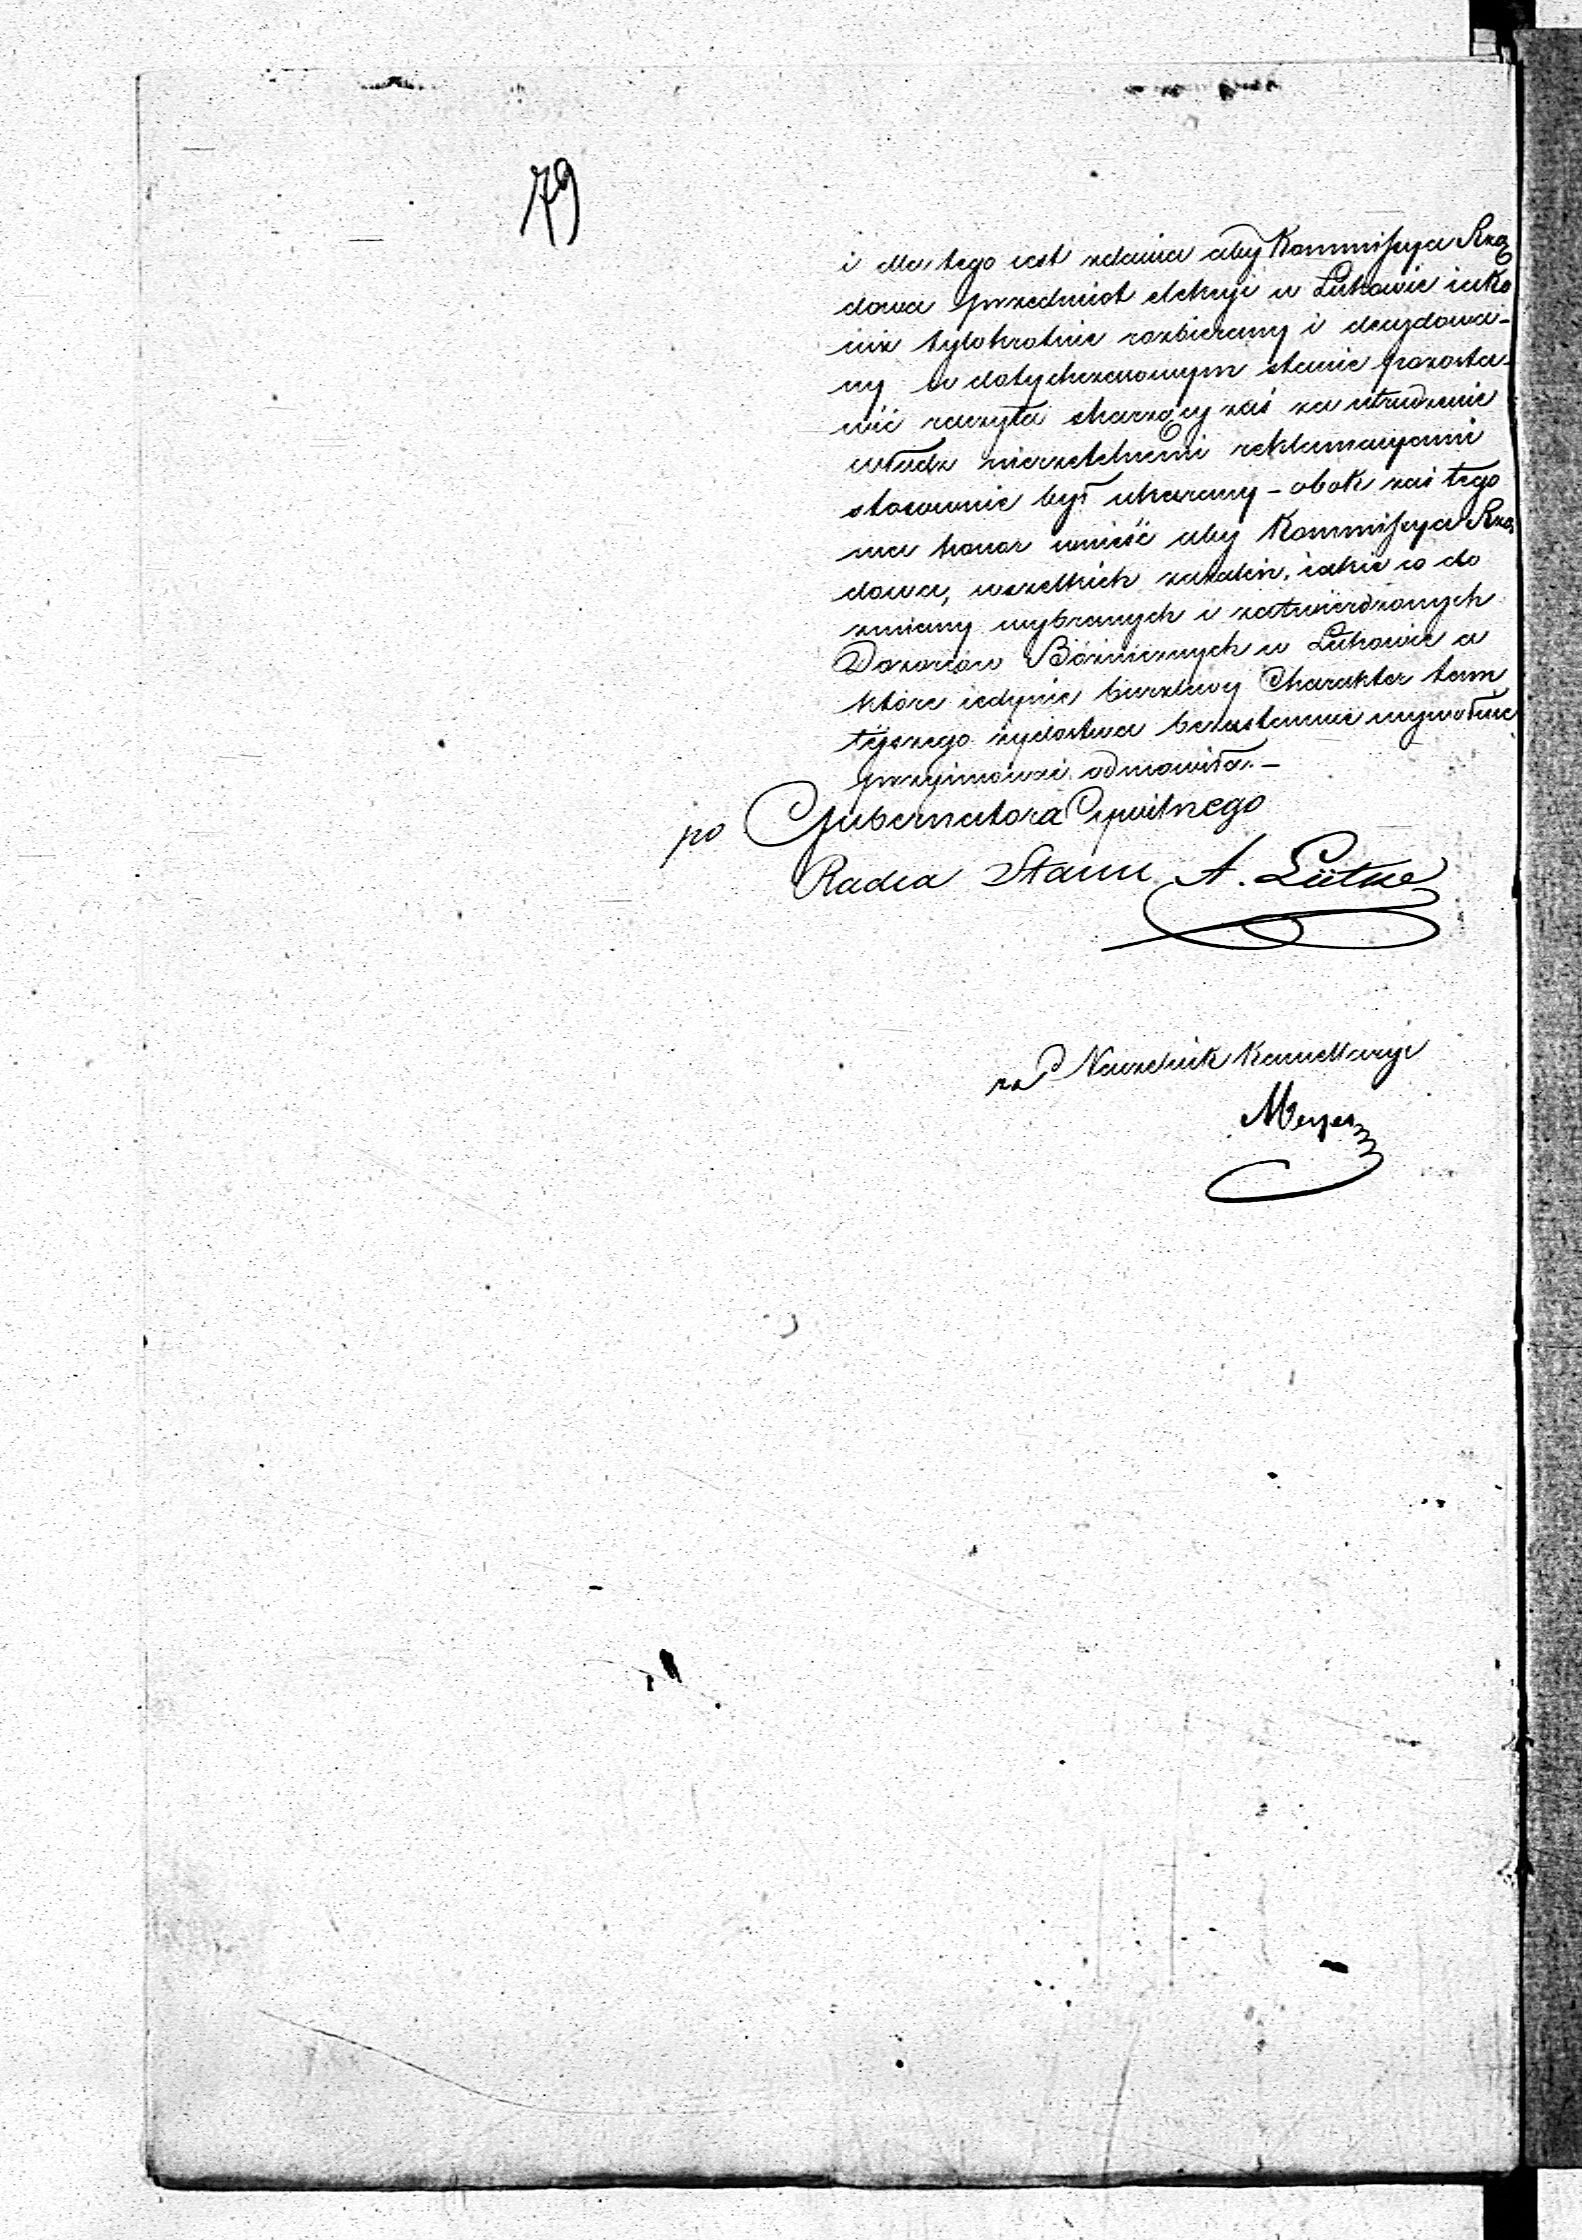 79
i dla tego iest zdania aby Kommissya Rzą
dowa przedmiot elekcyi w Łukowie iako
iuż tylokrotnie rozbierany i decydowa-
ny w dotychczasowym stanie pozosta-
wić raczyła skarżący zaś za utrudzenie
władz nierzetelnemi reklamacyami
stosownie był ukarany - obok zaś tego
ma honor wnieść aby Kommissya Rzą
dowa, wszelkich zażaleń, iakie co do
zmiany wybranych i zatwierdzonych
Dozorców Bóżnicznych w Łukowie a
które iedynie burzliwy Charakter tam
téjszego żydostwa bezustannie wywołuie
przyimować odmówiła. -
po Gubernatora Cywilnego
Radca Stanu A. Lütke
za Naczelnik Kancellaryi
Meyer